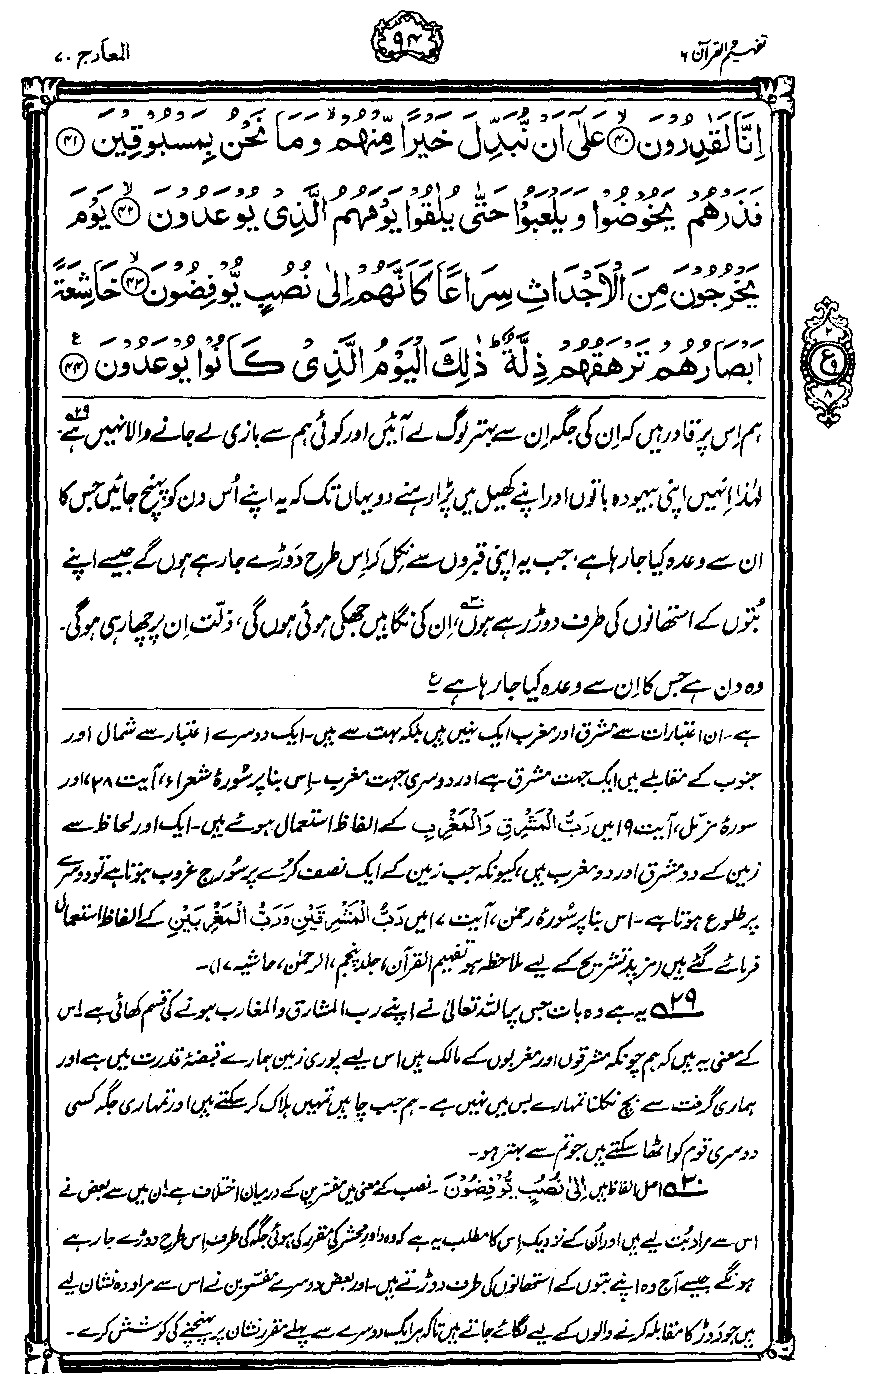 تفہیم القرآن ۶
۹۴
المعارج ۷۰
اِنَّا لَقٰدِرُوْنَ ﴿۴۰﴾ عَلٰٓى اَنْ نُّبَدِّلَ خَيْرًا مِّنْهُمْ وَمَا نَحْنُ بِمَسْبُوْقِيْنَ ﴿۴۱﴾
فَذَرْهُمْ يَخُوْضُوْا وَيَلْعَبُوْا حَتّٰى يُلٰقُوْا يَوْمَهُمُ الَّذِىْ يُوْعَدُوْنَ ﴿۴۲﴾ يَوْمَ
يَخْرُجُوْنَ مِنَ الْاَجْدَاثِ سِرَاعًا كَاَنَّهُمْ اِلٰى نُصُبٍ يُّوْفِضُوْنَ ﴿۴۳﴾ خَاشِعَةً
اَبْصَارُهُمْ تَرْهَقُهُمْ ذِلَّةٌ ؕ ذٰلِكَ الْيَوْمُ الَّذِىْ كَانُوْا يُوْعَدُوْنَ ﴿۴۴﴾ ع
۲
ع ۹
۸
ہم اِس پر قادر ہیں کہ اِن کی جگہ اِن سے بہتر لوگ لے آئیں اور کوئی ہم سے بازی لے جانے والا نہیں ہے۲۹۔
لہٰذا اِنہیں اپنی بیہودہ باتوں اور اپنے کھیل میں پڑا رہنے دو یہاں تک کہ یہ اپنے اُس دن کو پہنچ جائیں جس کا
ان سے وعدہ کیا جا رہا ہے، جب یہ اپنی قبروں سے نکل کر اِس طرح دَوڑے جا رہے ہوں گے جیسے اپنے
بُتوں کے استھانوں کی طرف دوڑ رہے ہوں۳۰، اِن کی نگاہیں جھکی ہوئی ہوں گی، ذلّت اِن پر چھا رہی ہوگی۔
وہ دن ہے جس کا اِن سے وعدہ کیا جا رہا ہے ع
ہے۔ ان اعتبارات سے مشرق اور مغرب ایک نہیں ہیں بلکہ بہت سے ہیں۔ ایک دوسرے اعتبار سے شمال اور
جنوب کے مقابلے میں ایک جہت مشرق ہے اور دوسری جہت مغرب۔ اِس بنا پر سُورۂ شعراء، آیت ۲۸، اور
سورۂ مزّمل، آیت ۱۹ میں رَبُّ الْمَشْرِقِ وَالْمَغْرِبِ کے الفاظ استعمال ہوئے ہیں۔ ایک اور لحاظ سے
زمین کے دو مشرق اور دو مغرب ہیں، کیونکہ جب زمین کے ایک نصف کُرّے پر سُورج غروب ہوتا ہے تو دوسرے
پر طلوع ہوتا ہے۔ اس بنا پر سُورۂ رحمٰن، آیت ۱۷ میں رَبُّ الْمَشْرِقَيْنِ وَرَبُّ الْمَغْرِبَيْنِ کے الفاظ استعمال
فرمائے گئے ہیں (مزید تشریح کے لیے ملاحظہ ہو تفہیم القرآن، جلد پنجم، الرحمٰن، حاشیہ ۱۷)۔
۲۹ یہ ہے وہ بات جس پر اللہ تعالیٰ نے اپنے رب المشارق والمغارب ہونے کی قسم کھائی ہے۔ اِس
کے معنی یہ ہیں کہ ہم چونکہ مشرقوں اور مغربوں کے مالک ہیں اس لیے پوری زمین ہمارے قبضۂ قدرت میں ہے اور
ہماری گرفت سے بچ نکلنا تمہارے بس میں نہیں ہے۔ ہم جب چاہیں تمہیں ہلاک کر سکتے ہیں اور تمہاری جگہ کسی
دوسری قوم کو اٹھا سکتے ہیں جو تم سے بہتر ہو۔
۳۰ اصل الفاظ ہیں اِلٰى نُصُبٍ يُّوْفِضُوْنَ۔ نصب کے معنی میں مفسّرین کے درمیان اختلاف ہے۔ ان میں سے بعض نے
اس سے مراد بُت لیے ہیں اور اُن کے نزدیک اِس کا مطلب یہ ہے کہ وہ داورِ محشر کی مقرر کی ہوئی جگہ کی طرف اِس طرح دوڑے جا رہے
ہونگے جیسے آج وہ اپنے بتوں کے استھانوں کی طرف دوڑتے ہیں۔ اور بعض دوسرے مفسّرین نے اس سے مراد وہ نشان لیے
ہیں جو دَوڑ کا مقابلہ کرنے والوں کے لیے لگائے جاتے ہیں تاکہ ہر ایک دوسرے سے پہلے مقرر نشان پر پہنچنے کی کوشش کرے۔